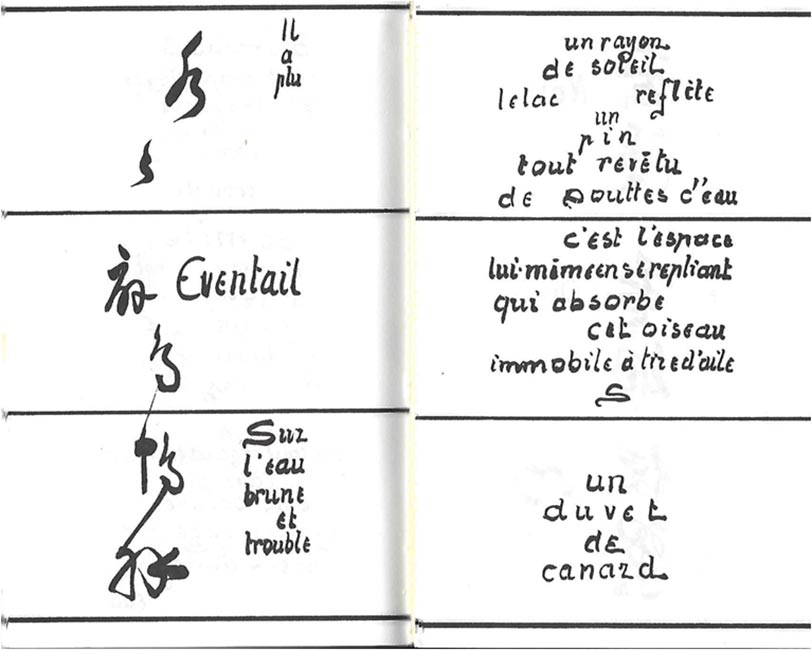 Il
a
plu
un rayon
de soleil
le lac reflète
un
pin
tout revêtu
de gouttes d'eau
鳥
Eventail
c'est l'espace
lui-même en se repliant
qui absorbe
cet oiseau
immobile à tire d'aile
鴨
Sur
l'eau
brune
et
trouble
un
duvet
de
canard